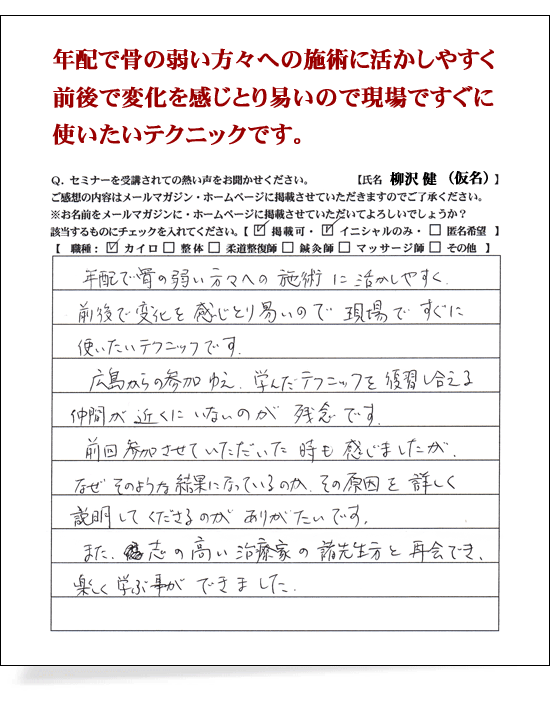 年配で骨の弱い方々への施術に活かしやすく
前後で変化を感じとり易いので現場ですぐに
使いたいテクニックです。
Q. セミナーを受講されての熱い声をお聞かせください。 【氏名 柳沢 健 （仮名）】
ご感想の内容はメールマガジン・ホームページに掲載させていただきますのでご了承ください。
※お名前をメールマガジンに・ホームページに掲載させていただいてよろしいでしょうか？
該当するものにチェックを入れてください。【 ☑ 掲載可・ ☑ イニシャルのみ・ □ 匿名希望 】
【 職種： ☑ カイロ □ 整体 □ 柔道整復師 □ 鍼灸師 □ マッサージ師 □ その他 】
年配で骨の弱い方々への施術に活かしやすく
前後で変化を感じとり易いので現場ですぐに
使いたいテクニックです.
広島からの参加ゆえ、学んだテクニックを復習し合える
仲間が近くにいないのが残念です.
前回参加させていただいた時も感じましたが、
なぜそのような結果になっているのか、その原因を詳しく
説明してくださるのがありがたいです。
また、志の高い治療家の諸先生方と再会でき、
楽しく学ぶ事ができました.